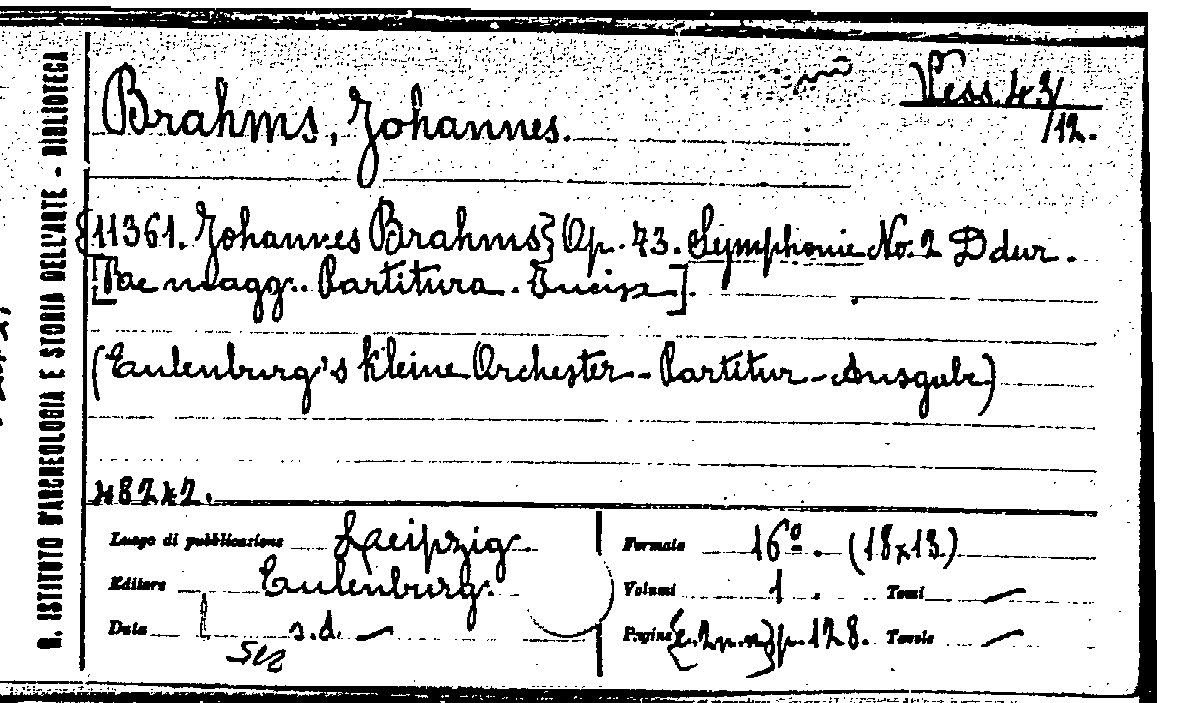 R. ISTITUTO D'ARCHEOLOGIA E STORIA DELL'ARTE - BIBLIOTECA
Vess. 43/
/12.
Brahms, Johannes.
{11361. Johannes Brahms} Op. 73. Symphonie No. 2 D dur.
[magg. Partitura.
(Eulenburg's kleine Orchester - Partitur - Ausgabe)
48242.
Luogo di pubblicazione Leipzig
Formato 16º. (18x13)
Editore Eulenburg.
Volumi 1. Tomi —
Data s.d. —
Pagine {c. 2 n.n} p. 128. Tavole —